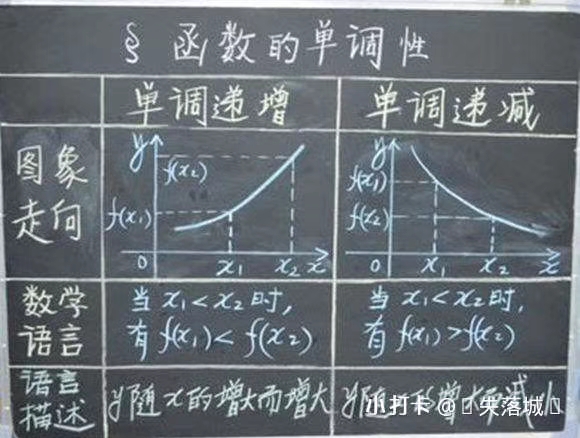 § 函数的单调性
单调递增 单调递减
图象
走向
y
f(x2)
f(x1)
0 x1 x2 x
y
f(x1)
f(x2)
0 x1 x2 x
数学
语言
当 x1<x2时,
有 f(x1)<f(x2)
当 x1<x2时,
有 f(x1)>f(x2)
语言
描述
y随x的增大而增大
y随x的增大而减小
小打卡@ 失落城